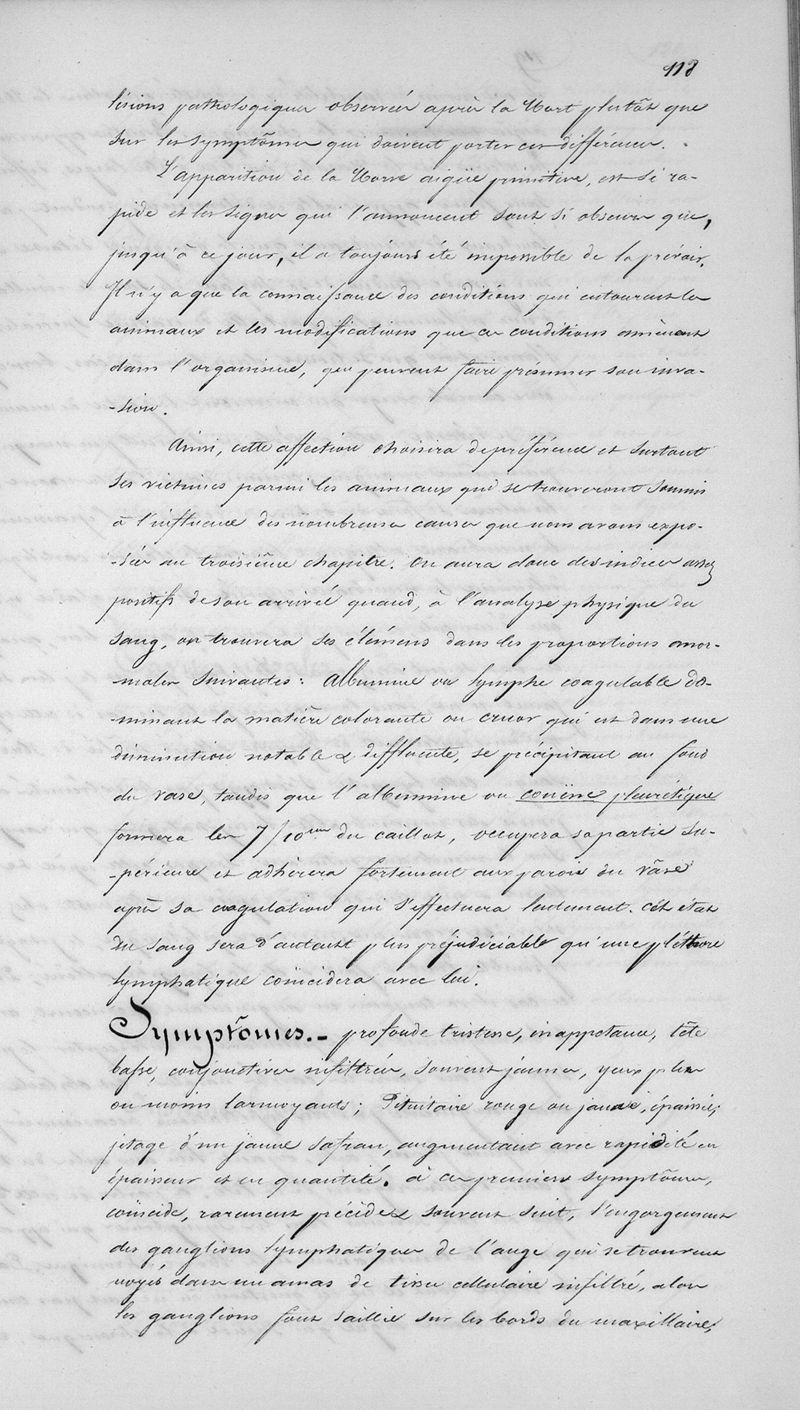 118
lésions pathologiques observées après la Mort plutôt que
sur les symptômes qui doivent porter ces différences.
L'apparition de la Morve aigüe primitive, est si ra-
pide et les signes qui l'annoncent sont si obscurs que,
jusqu'à ce jour, il a toujours été impossible de la prévoir.
Il n'y a que la connaissance des conditions qui entourent les
animaux et les modifications que ces conditions amènent
dans l'organisme, qui peuvent faire présumer son inva-
-sion.
Ainsi, cette affection choisira de préférence et surtout
ses victimes parmi les animaux qui se trouveront soumis
à l'influence des nombreuses causes que nous avons expo-
-sées au troisième chapitre. On aura donc des indices assez
positifs de son arrivée quand, à l'analyse physique du
sang, on trouvera ses élémens dans les proportions anor-
-males suivantes: albumine ou lymphe coagulable do-
-minant la matière colorante ou cruor qui est dans une
diminution notable & diffluente, se précipitant au fond
du vase, tandis que l'albumine ou couënne pleurétique
formera les 7/10èmes du caillot, occupera sa partie su-
-périeure et adhèrera fortement aux parois du vâse
après sa coagulation qui s'effectuera lentement. Cet état
du sang sera d'autant plus préjudiciable qu'une pléthore
lymphatique coïncidera avec lui.
Symptômes.- profonde tristesse, inappetance, tête
basse, conjonctives infiltrées, souvent jaunes, yeux plus
ou moins larmoyants; Pituitaire rouge ou jaune, épaissie;
jetage d'un jaune safran, augmentant avec rapidité en
épaisseur et en quantité. à ces premiers symptômes,
coïncide, rarement précède & souvent suit, l'engorgement
des ganglions lymphatiques de l'auge qui se trouvent
noyés dans un amas de tissu cellulaire infiltré, alors
les ganglions font saillie sur les bords du maxillaire;